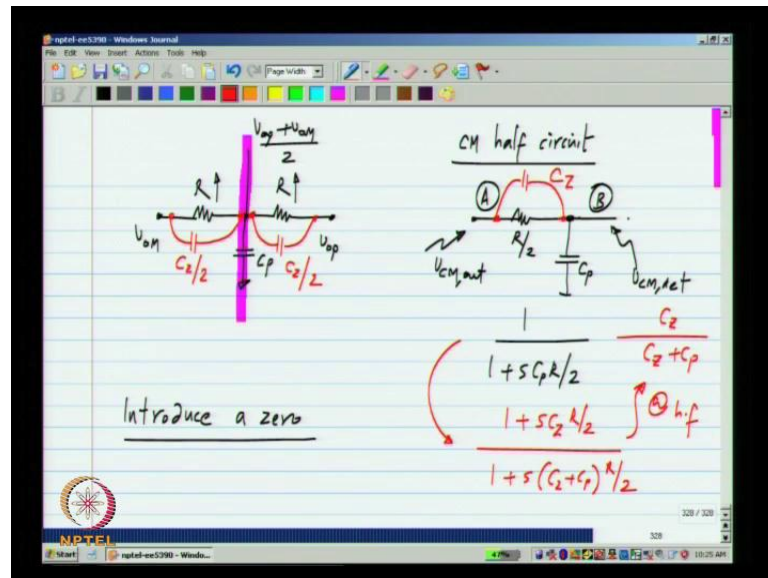 nptel-ee5390 - Windows Journal
File Edit View Insert Actions Tools Help
Page Width
Vop + Vom
2
R
R
Vom
Vop
Cz/2
Cp
Cz/2
Introduce a zero
CM half circuit
Cz
A
B
R/2
Cp
Vcm,out
Vcm,det
1
1 + sCpR/2
Cz
Cz + Cp
1 + sCzR/2
@ h.f
1 + s(Cz+Cp) R/2
328 / 328
328
NPTEL
Start
nptel-ee5390 - Windo...
47%
10:25 AM